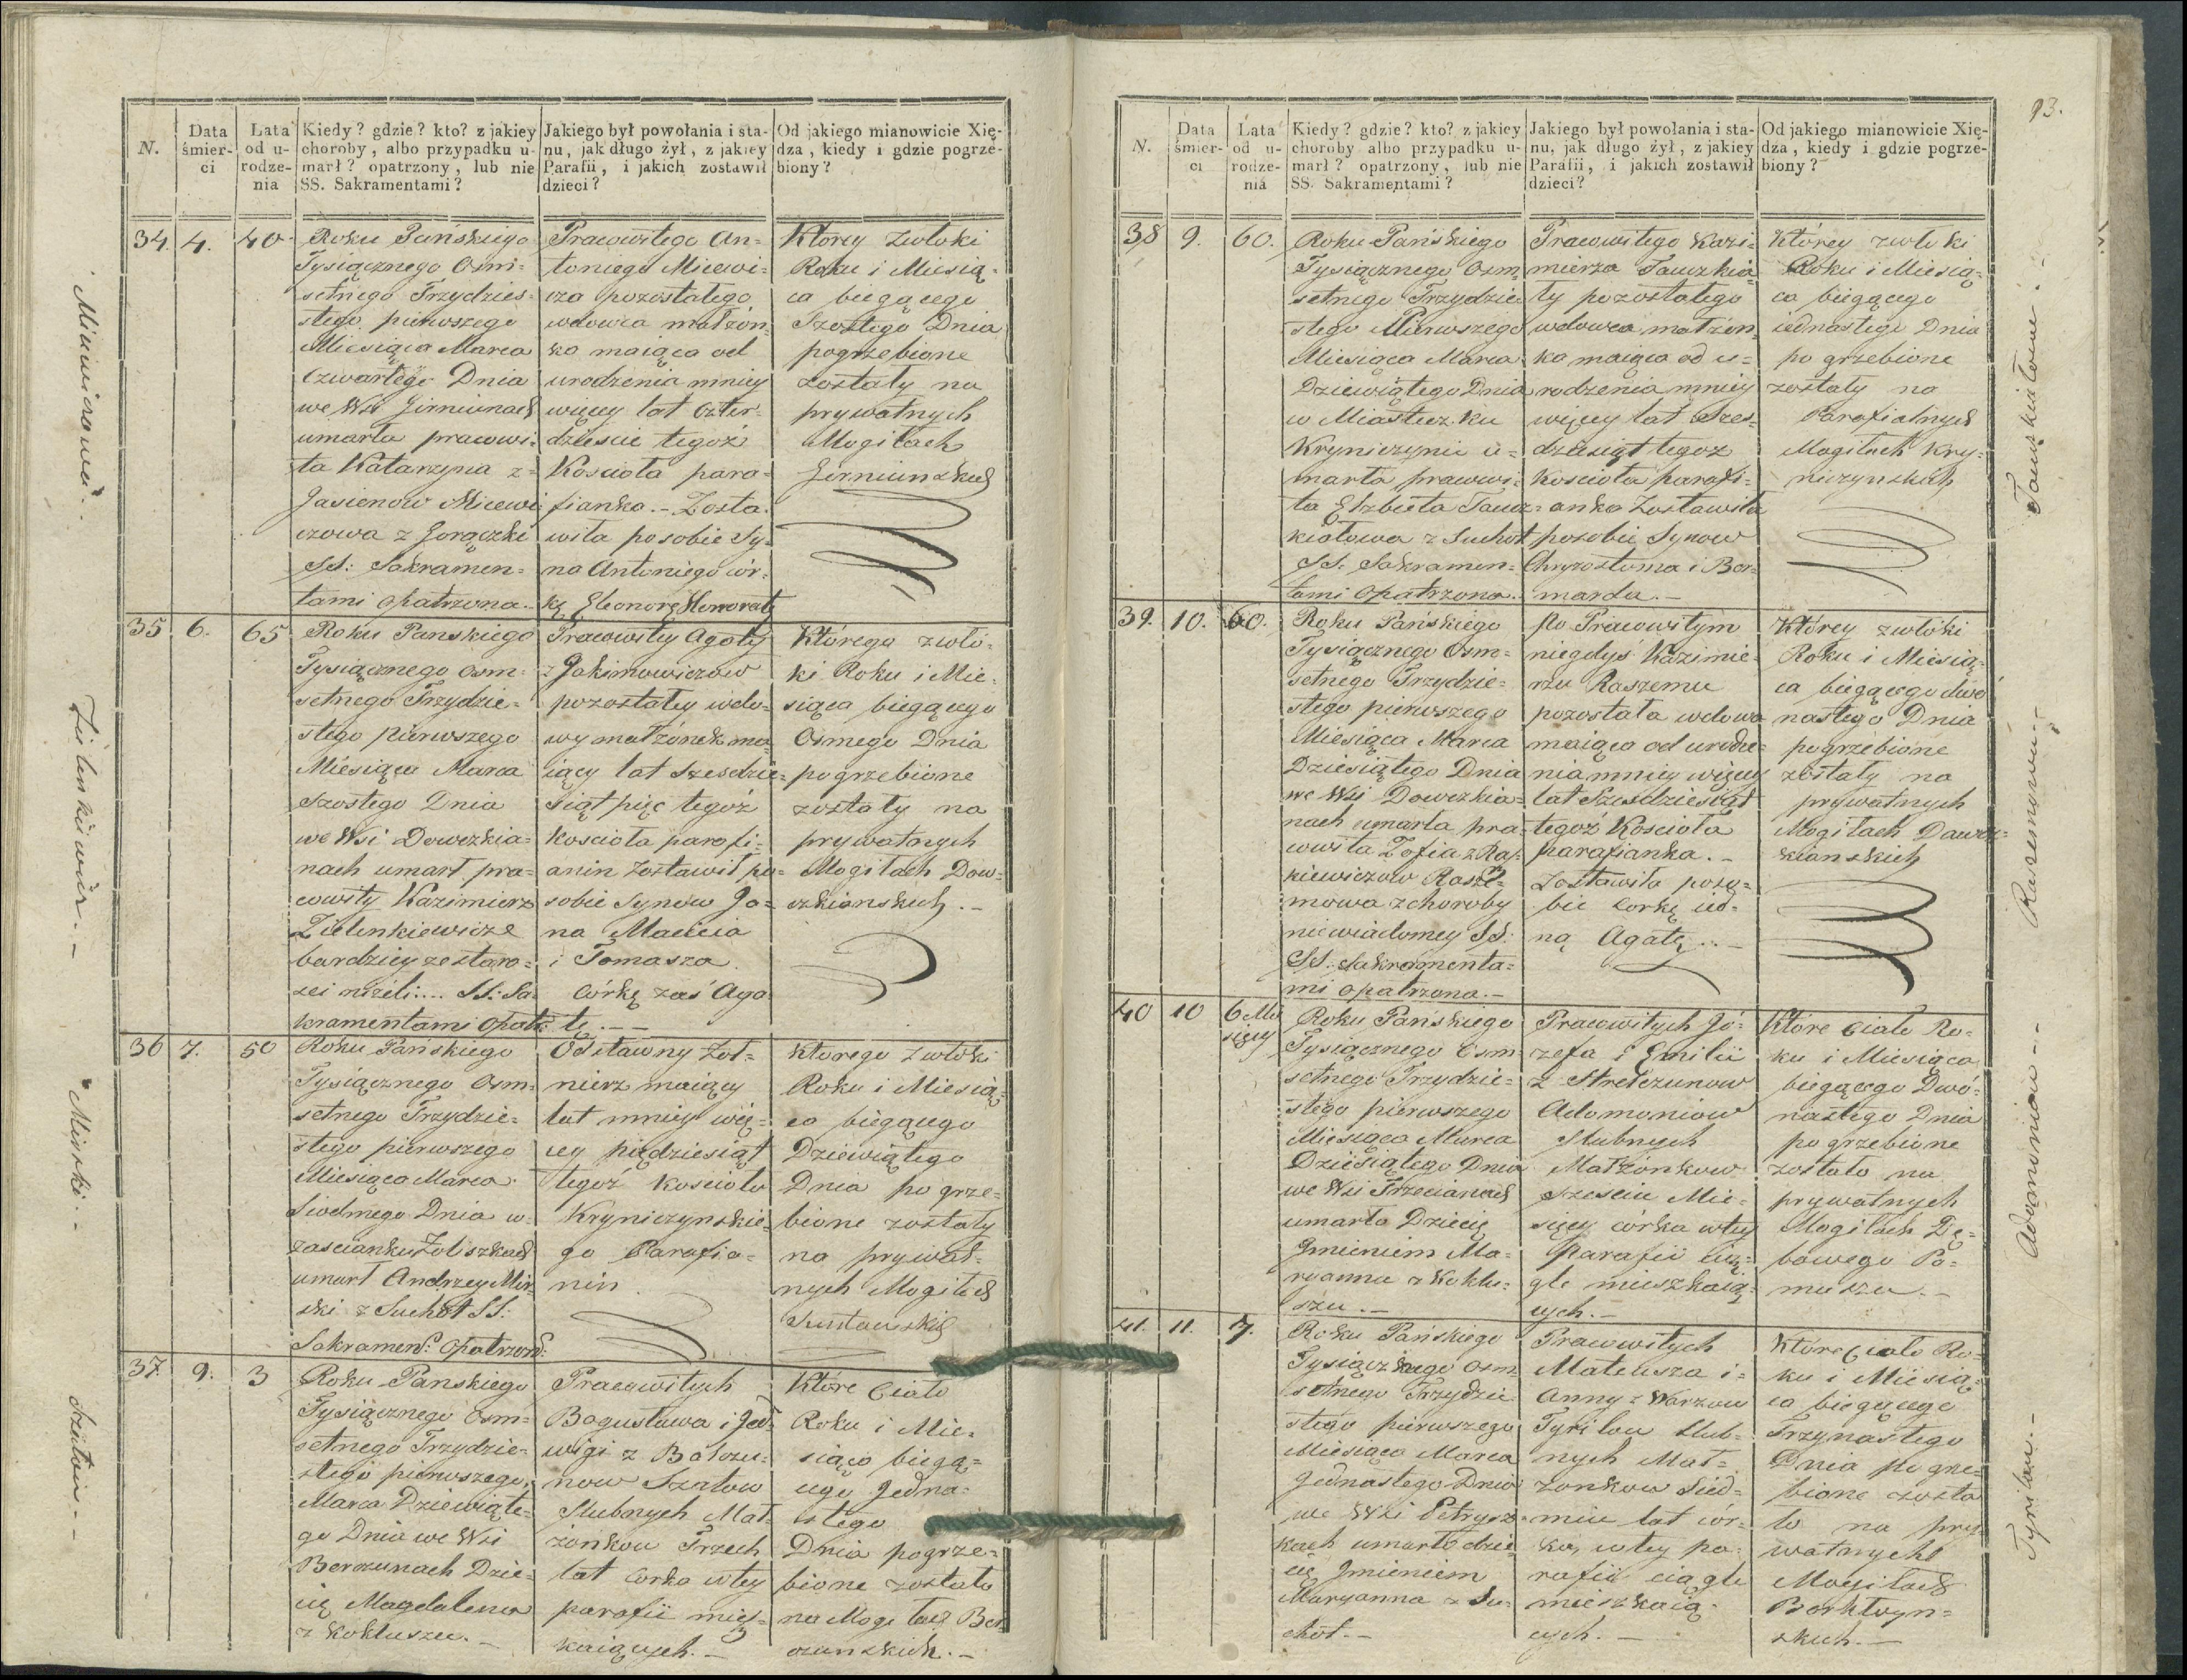 N.
Data
śmier-
ci
Lata
od u-
rodze-
nia
Kiedy? gdzie? kto? z jakiey
choroby, albo przypadku u-
marł? opatrzony, lub nie
SS. Sakramentami?
Jakiego był powołania i sta-
nu, jak długo żył, z jakiey
Parafii, i jakich zostawił
dzieci?
Od jakiego mianowicie Xię-
dza, kiedy i gdzie pogrze-
biony?
34
4.
40.
Roku Pańskiego
Tysiącznego Osm-
setnego Trzydzies-
stego pierwszego
Miesiąca Marca
Czwartego Dnia
we Wsi Girniunach
umarła pracowi-
ta Katarzyna z
Jasienow Micewi
czowa z Gorączki
SS: Sakramen=
tami opatrzona.
Pracowitego An-
toniego Micewi-
cza pozostałego
wdowca małżon-
ka maiąca od
urodzenia mniey
więcey lat czter-
dzieście tegoż
Kościoła para-
fianka. - Zosta
wiła po sobie Sy-
na Antoniego cór-
kę Eleonorę Honoratę
Ktorey zwłoki
Roku i Miesią-
ca biegącego
Szostego Dnia
pogrzebione
zostały na
prywatnych
Mogiłach
Girniunskich
35
6.
65
Roku Panskiego
Tysiącznego osm-
setnego Trzydzie-
stego pierwszego
Miesiąca Marca
Szostego Dnia
we Wsi Dowczkia-
nach umarł pra-
cowity Kazimierz
Zielenkiewicz
bardziey ze staro-
sci niżeli.... SS: Sa-
kramentami opatr:
Pracowitey Agaty
z Jakimowiczow
pozostałey wdo-
wy małżonek ma
iący lat szesdzie-
siąt pięć tegoż
Kościoła parafi-
anin zostawił po
sobie Synow Ja-
na Macieia
i Tomasza
Córkę zaś Aga
tę. -
Którego zwło-
ki Roku i Mie-
siąca biegącego
Osmego Dnia
pogrzebione
zostały na
prywatnych
Mogiłach Dow-
czkianskich. -
36
7.
50
Roku Pańskiego
Tysiącznego Osm-
setnego Trzydzie-
stego pierwszego
Miesiąca Marca
Siodmego Dnia w
zascianku Zoliszkach
umarł Andrzey Mir-
ski z Suchot SS:
Sakramen: opatrzon:
Odstawny Żoł-
nierz maiący
lat mniey wię-
cey pięćdziesiąt
tegoż Kościoła
Kryniczynskie-
go Parafia-
nin.
Ktorego zwłoki
Roku i Miesią-
ca biegącego
Dziewiątego
Dnia pogrze-
bione zostały
na prywat-
nych Mogiłach
37
9.
3
Roku Panskiego
Tysiącznego Osm-
setnego Trzydzie-
stego pierwszego
Marca Dziewiąte-
go Dnia we Wsi
Borczunach Dzie-
cię Magdalena
z Kokluszu. -
Pracowitych
Bogusława i Jad-
wigi z Borczu-
now Szatow
Slubnych Mał-
żonkow Trzech
lat Corka w tey
parafii miesz-
kaiących. -
Które Ciało
Roku i Mie-
siąca biegą-
cego Jedna-
stego
Dnia pogrze-
bione zostało
na Mogiłach Bor
czunskich. -
Micewiczowa.
Zielenkiewicz. -
Mirski. -
Szatow. -
93.
N.
Data
śmier-
ci
Lata
od u-
rodze-
nia
Kiedy? gdzie? kto? z jakiey
choroby albo przypadku u-
marł? opatrzony, lub nie
SS. Sakramentami?
Jakiego był powołania i sta-
nu, jak długo żył, z jakiey
Parafii, i jakich zostawił
dzieci?
Od jakiego mianowicie Xię-
dza, kiedy i gdzie pogrze-
biony?
38
9.
60.
Roku Pańskiego
Tysiącznego Osm
setnego Trzydzie
stego Pierwszego
Miesiąca Marca
Dziewiątego Dnia
w Miasteczku
Kryniczynie u-
marła pracowi-
ta Elzbieta Taucz-
kiałowa z Suchot
SS. Sakramen-
tami opatrzona.
Pracowitego Kazi-
mierza Tauczkia
ły pozostałego
wdowca małżon
ka maiąca od u-
rodzenia mniey
więcey lat szes-
dziesiąt tegoz
Kościoła parafi-
anka Zostawiła
po sobie Synow
Chryzostoma i Ber-
narda. -
Którey zwłoki
Roku i Miesią-
ca biegącego
iednastego Dnia
pogrzebione
zostały na
Parafialnych
Mogiłach Kry-
niczynskich
39.
10.
60.
Roku Pańskiego
Tysiącznego Osm-
setnego Trzydzie-
stego pierwszego
Miesiąca Marca
Dziesiątego Dnia
we Wsi Dowczkia-
nach umarła pra-
cowita Zofia z Ra
kiewiczow Rasze-
mowa z choroby
niewiadomey SS:
SS: Sakramenta-
mi opatrzona. -
Po Pracowitym
niegdys Kazimie-
rzu Raszemu
pozostała wdowa
maiąca od urodze-
nia mniey więcey
lat Szesdziesiąt
tegoż Kościoła
parafianka. -
Zostawiła poso-
bie corkę ied-
ną Agatę. -
Którey zwłoki
Roku i Miesią-
ca biegącego dwó
nastego Dnia
pogrzebione
zostały na
prywatnych
Mogiłach Dowcz-
kianskich
40
10
6 Mie
sięcy
Roku Pańskiego
Tysiącznego Osm
setnego Trzydzie-
stego pierwszego
Miesiąca Marca
Dziesiątego Dnia
we Wsi Trzecianach
umarło Dziecię
Jmieniem Ma-
ryanna z Koklu-
szu. -
Pracowitych Jó-
zefa i Emilii
z Strelczunow
Adomoniow
Slubnych
Małżonkow
szesciu Mie-
sięcy córka w tey
Parafii cią-
gle mieszkaią
cych. -
Które Ciało Ro-
ku i Miesiąca
biegącego Dwó-
nastego Dnia
pogrzebione
zostało na
prywatnych
Mogiłach Dę-
bowego Po-
musza. -
41.
11.
7.
Roku Pańskiego
Tysiącznego Osm
setnego Trzydzie-
stego pierwszego
Miesiąca Marca
Jednastego Dnia
we Wsi Petrysz-
kach umarło dzie-
cię Jmieniem
Maryanna z Su-
chot. -
Pracowitych
Mateusza i
Anny z Warzow
Tyrilow Slub-
nych Mał-
żonkow Sied-
miu lat cór-
ka, w tey pa-
rafii ciągle
mieszkaią-
cych. -
Które Ciało Ro-
ku i Miesią-
ca biegącego
Trzynastego
Dnia pogrze-
bione zosta
ło na pry
watnych
Mogiłach
skich. -
Tauczkiałowa. -
Raszemowa. -
Adomoniow. -
Tyrilow. -